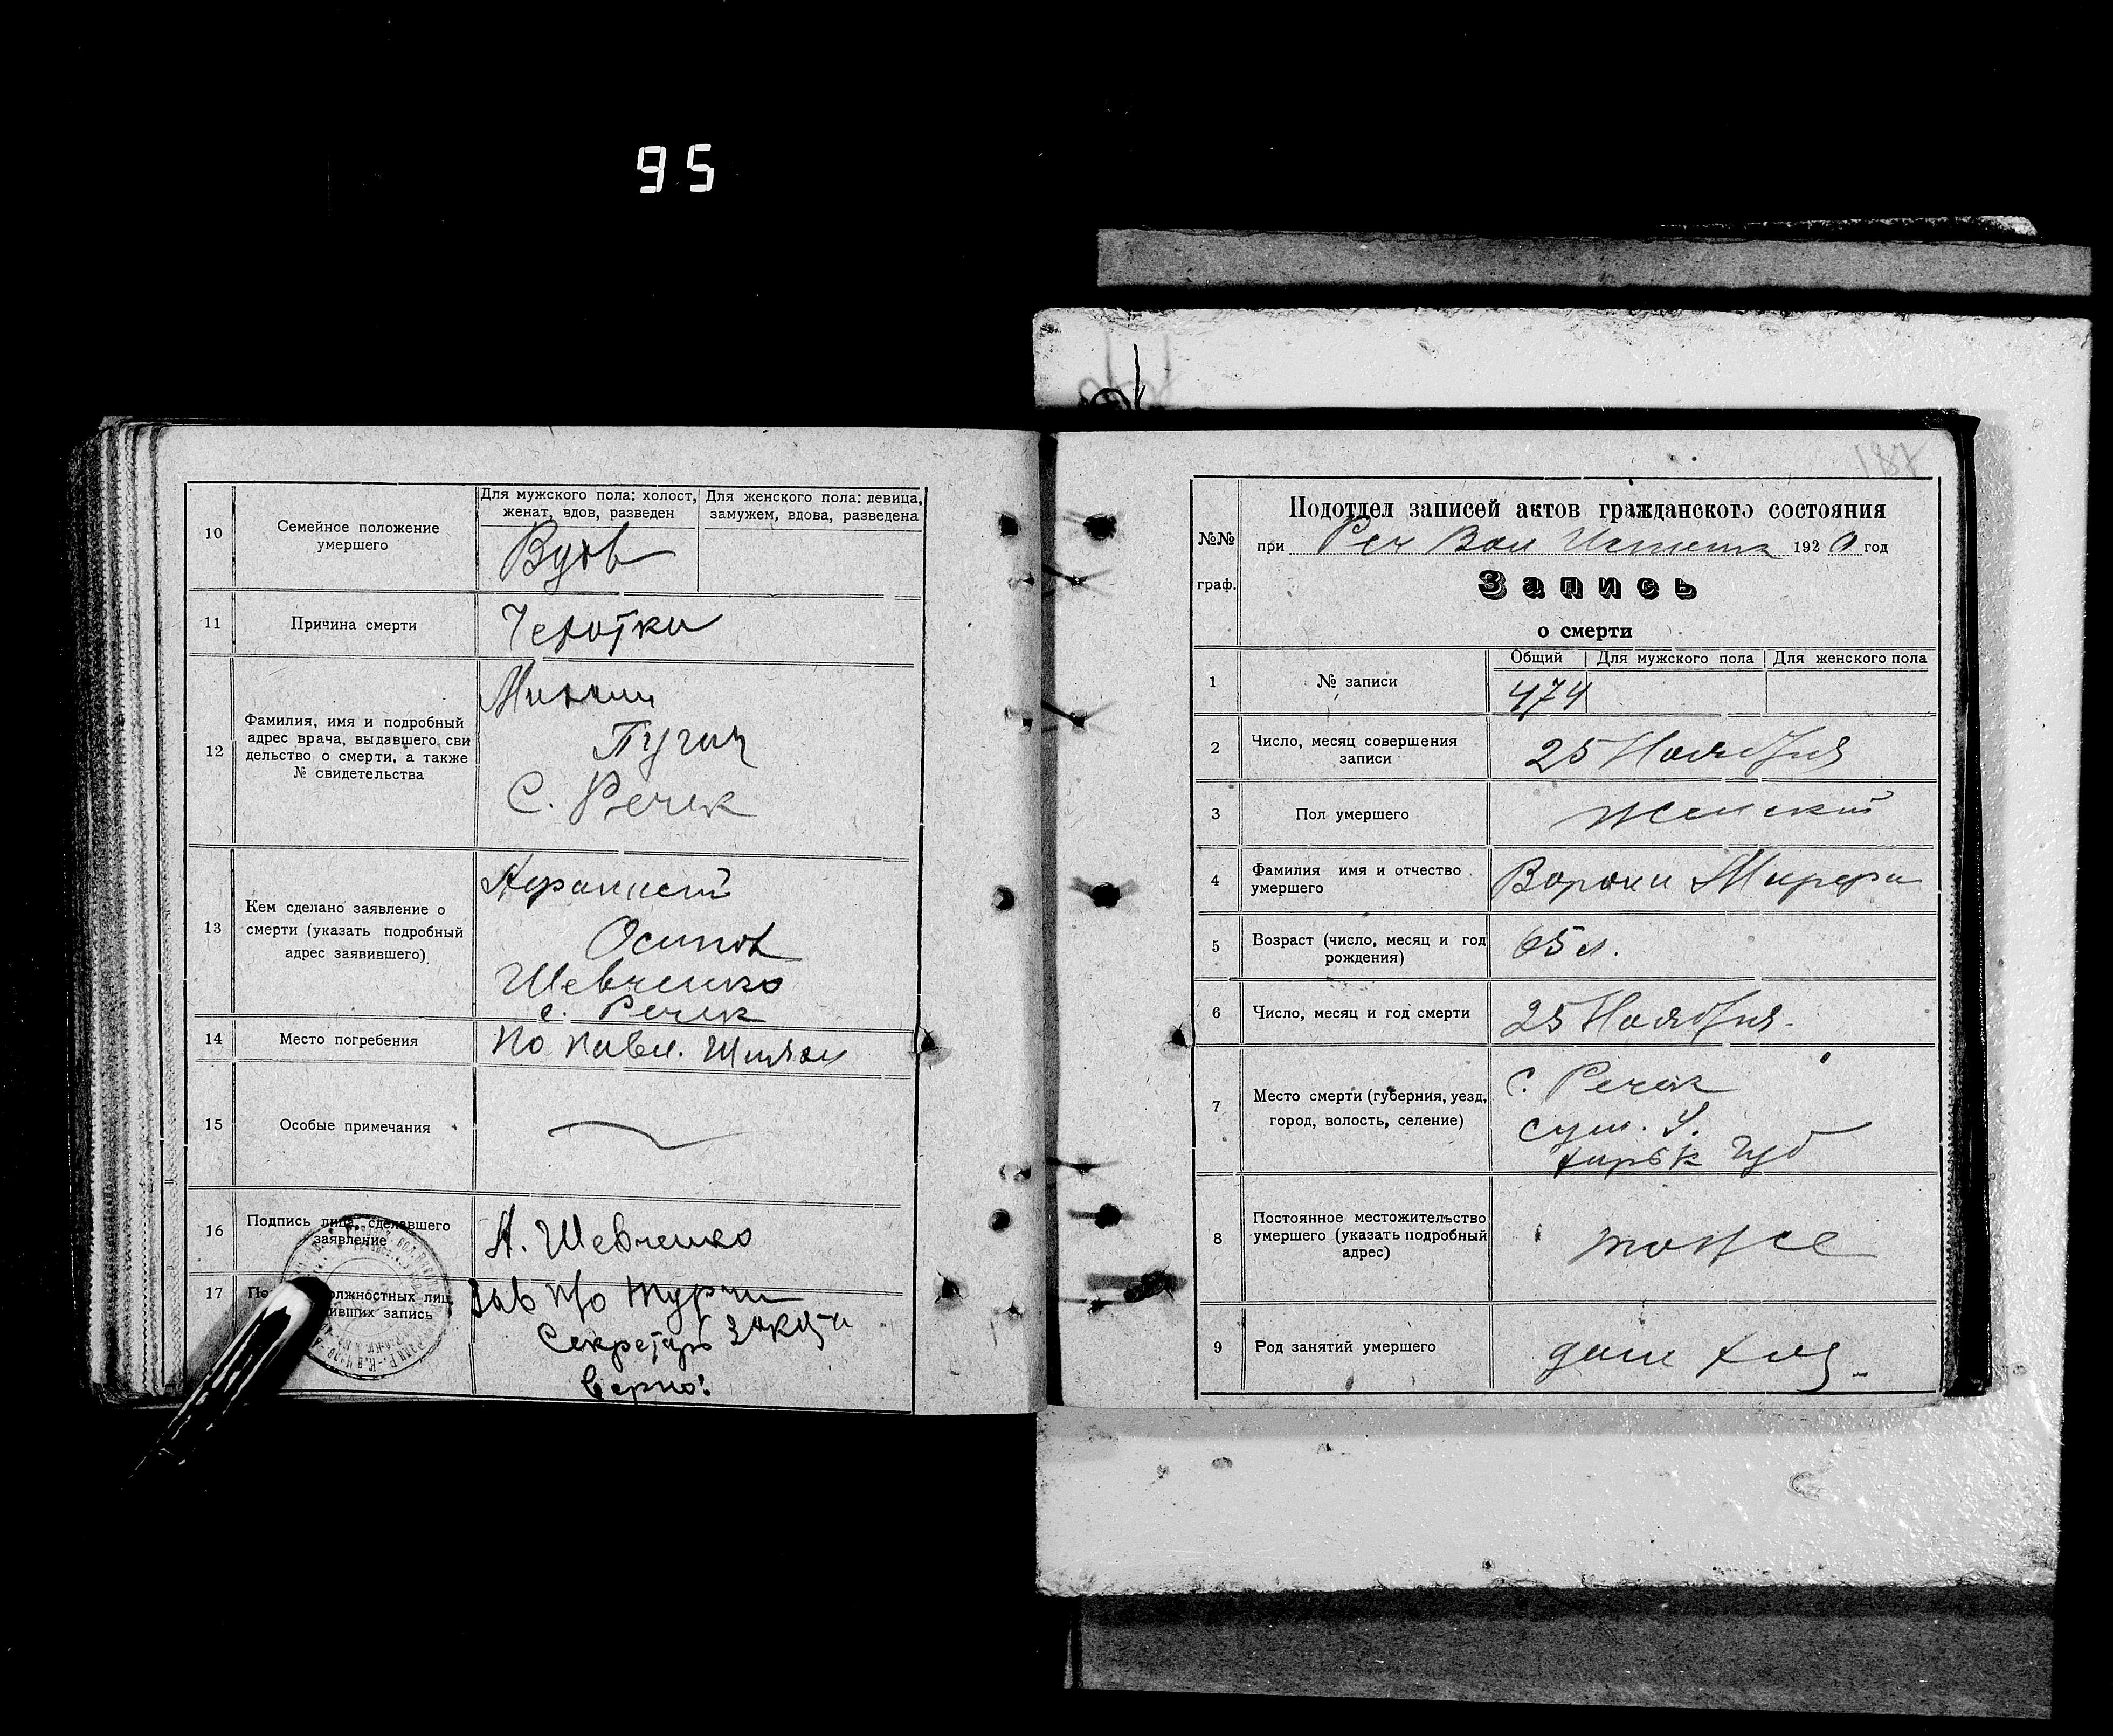 95
10
Семейное положение
умершего
Для мужского пола: холост,
женат, вдов, разведен
Для женского пола: девица,
замужем, вдова, разведена
Вдов
11
Причина смерти
Чехотки
12
Фамилия, имя и подробный
адрес врача, выдавшего сви
дельство о смерти, а также
№ свидетельства
С. Речек
13
Кем сделано заявление о
смерти (указать подробный
адрес заявившего)
Осипов
Шевченко
с. Речек
14
Место погребения
15
Особые примечания
16
Подпись лица, сделавшего
заявление
А. Шевченко
17
должностных лиц,
ивших запись
Зав п/о
Секретарь
Верно!
187
№№
граф.
Подотдел записей актов гражданского состояния
при Реч Вол 1920 год
Запись
о смерти
1
№ записи
Общий
Для мужского пола
Для женского пола
474
2
Число, месяц совершения
записи
25 Ноября
3
Пол умершего
Женский
4
Фамилия имя и отчество
умершего
5
Возраст (число, месяц и год
рождения)
65 л.
6
Число, месяц и год смерти
25 Ноября
7
Место смерти (губерния, уезд,
город, волость, селение)
с. Речек
Сум. У.
Харьк Губ
8
Постоянное местожительство
умершего (указать подробный
адрес)
тоже
9
Род занятий умершего
дом хоз